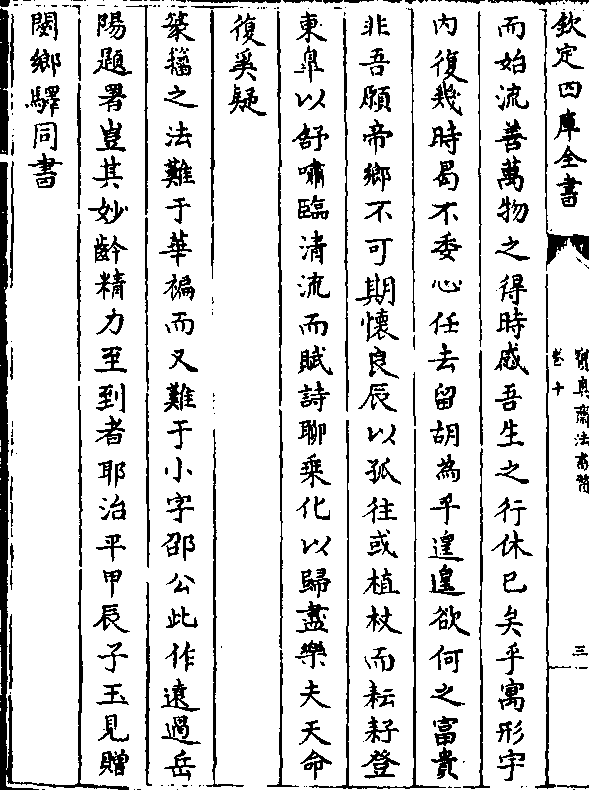 欽定四庫全書
寳真齋法書贊
卷十
三
而始流善萬物之得時感吾生之行休已矣乎寓形宇
内復幾時曷不委心任去留胡為乎遑遑欲何之富貴
非吾願帝鄉不可期懷良辰以孤往或植杖而耘耔登
東皐以舒嘯臨清流而賦詩聊乗化以歸盡樂夫天命
復奚疑
篆籀之法難于華褊而又難于小字邵公此作遠過岳
陽題署豈其妙齡精力至到者耶治平甲辰子玉見贈
閿鄉驛同書